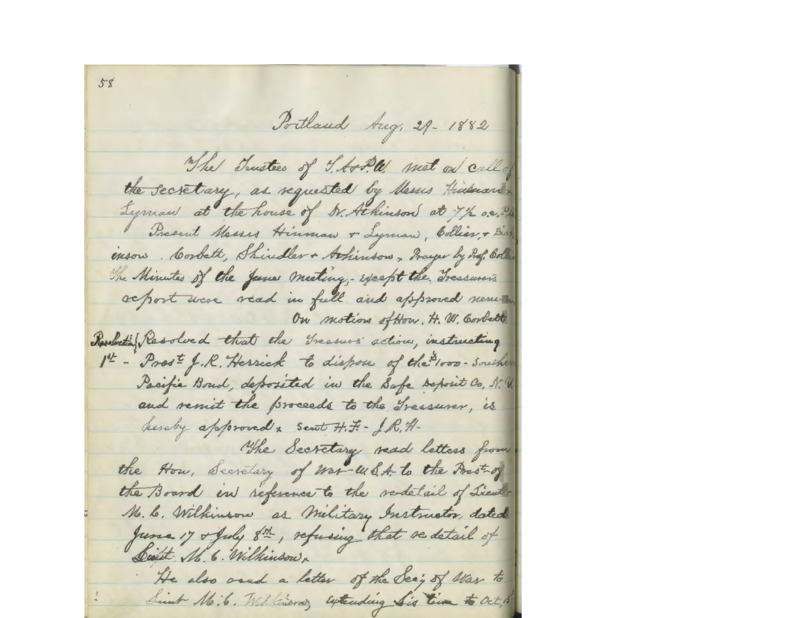 58
Portland Aug. 29 - 1882
The Trustees of T. A. & P. U. met on call of
the secretary, as requested by Messrs Hinman &
Lyman at the house of Dr. Atkinson at 7½ o.c.
Present Messrs Hinman & Lyman, Collier, &
inson. Corbett, Shindler & Atkinson. Prayer by Prof. Collier
The Minutes of the June meeting, - except the Treasurers
report were read in full and approved
On motion of Hon. H. W. Corbett
Resolved that the Treasurers action, instructing
1st - Prest J. R. Herrick to dispose of the $1000 - Southern
Pacific Bond, deposited in the Safe Deposit Co. N. Y.
and remit the proceeds to the Treasurer, is
hereby approved & sent H. F. - J. R. H -
The Secretary read letters from
the Hon. Secretary of War - U.S.A. to the Prest - of
the Board in reference to the redetail of Lieut
M. C. Wilkinson as Military Instructor, dated
June 17 & July 8th, refusing that redetail of
Lieut. M. C. Wilkinson.
He also read a letter of the Sec'y of War to
Lieut M. C. Wilkinson, extending his time to Oct.